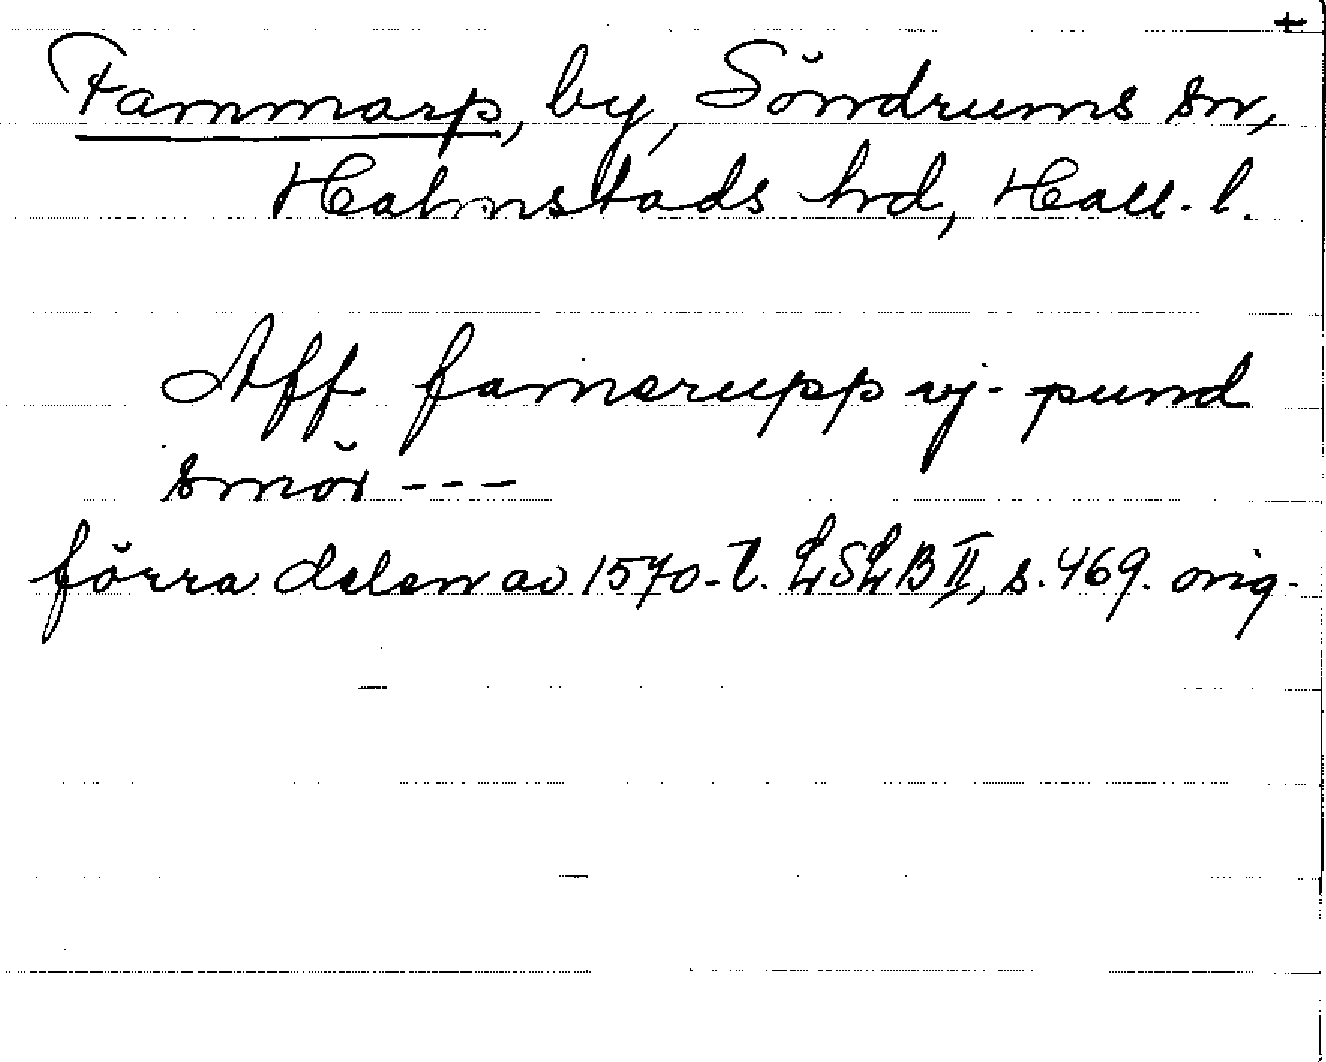 +
Fammarp, by, Söndrums sn,
Halmstads hrd, Hall. l.
Aff famerupp vj- pund
smör ---
förra delen av 1570-t. LSLB II, s. 469. orig.